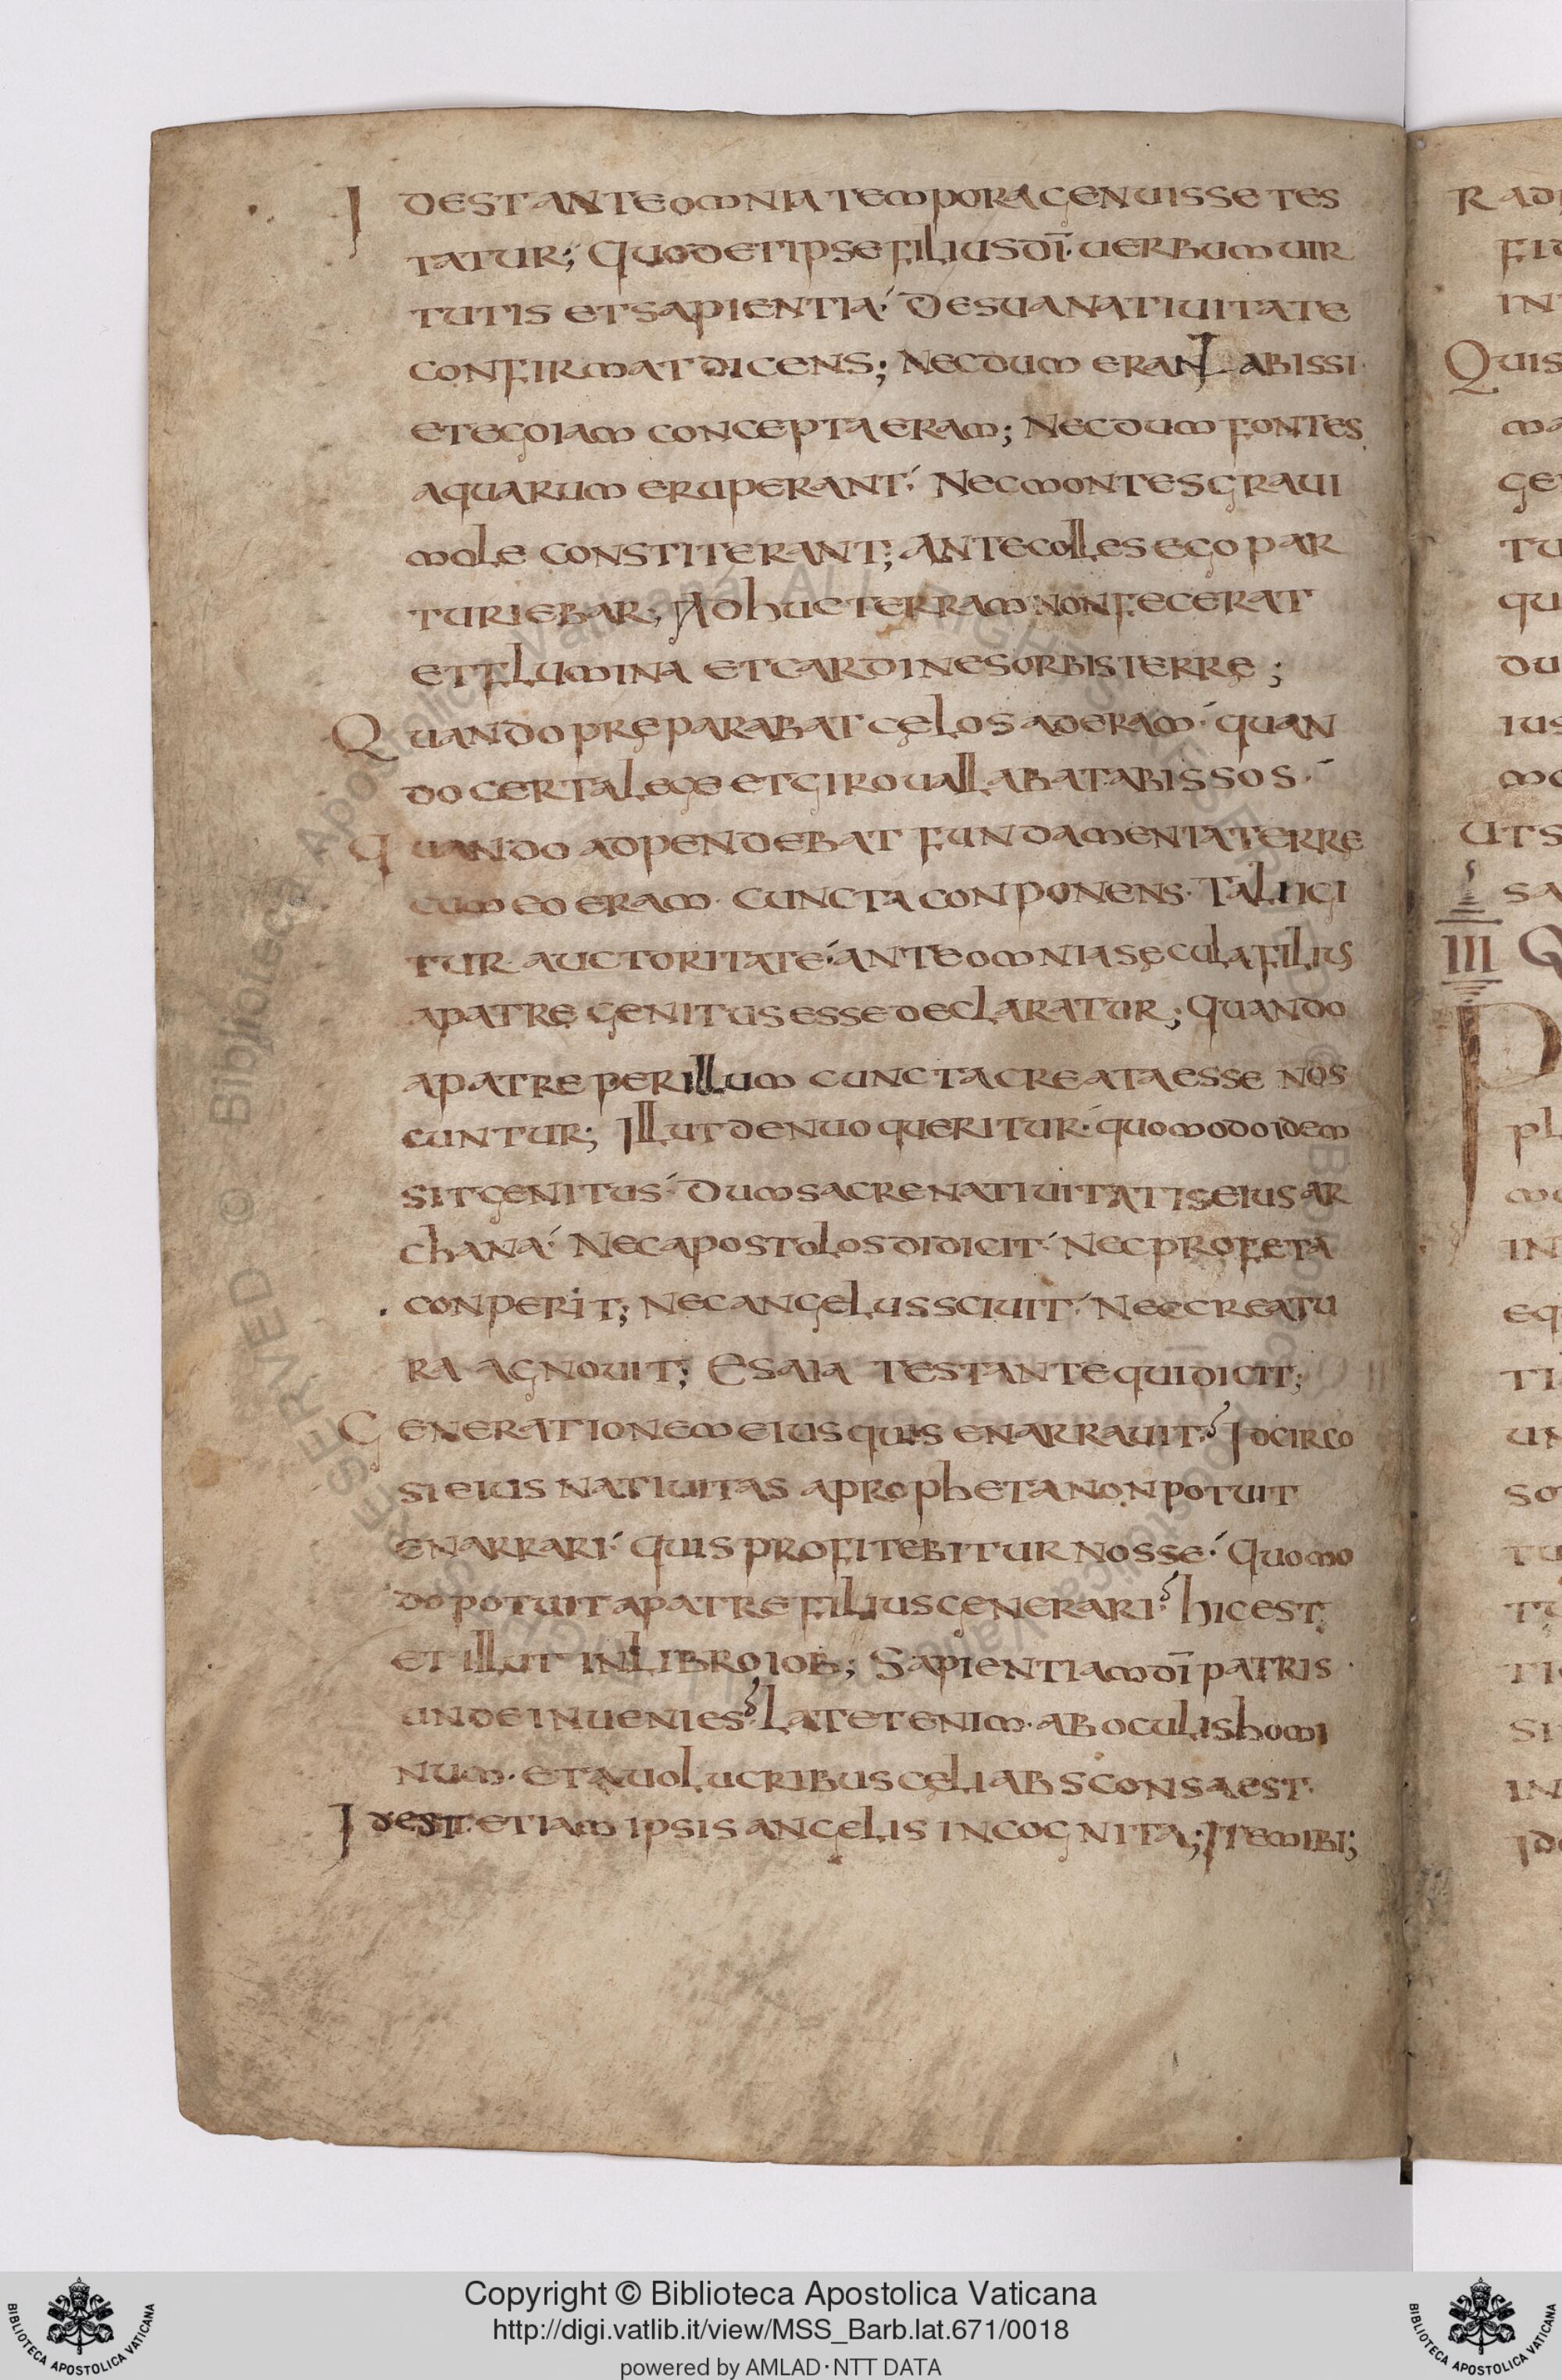 IDEST ANTE OMNIA TEMPORA GENUISSE TES
TATUR; QUOD ET IPSE FILIUS DĪ· UERBUM UIR
TUTIS ET SAPIENTIA· DE SUA NATIUITATE
CONFIRMAT DICENS; NECDUM ERANT ABISSI·
ET EGO IAM CONCEPTA ERAM; NECDUM FONTES
AQUARUM ERUPERANT· NEC MONTES GRAUI
MOLE CONSTITERANT; ANTE COLLES EGO PAR
TURIEBAR; ADHUC TERRAM NON FECERAT
ET FLUMINA ET CARDINES ORBIS TERRĘ;
QUANDO PRĘPARABAT CĘLOS ADERAM· QUAN
DO CERTA LEGE ET GIRO UALLABAT ABISSOS·
QUANDO ADPENDEBAT FUNDAMENTA TERRĘ
CUM EO ERAM· CUNCTA CONPONENS· TALI IGI
TUR AUCTORITATE· ANTE OMNIA SĘCULA FILIUS
A PATRĘ GENITUS ESSE DECLARATUR; QUANDO
A PATRE PER ILLUM CUNCTA CREATA ESSE NOS
CUNTUR; ILLUT DENUO QUERITUR· QUOMODO IDEM
SIT GENITUS· DUM SACRE NATIUITATIS EIUS AR
CHANA· NEC APOSTOLOS DIDICIT· NEC PROFETA
CONPERIT; NEC ANGELUS SCIUIT· NEC CREATU
RA AGNOUIT; ESAIA TESTANTE QUI DICIT;
GENERATIONEM EIUS QUIS ENARRAUIT? IDCIRCO
SI EIUS NATIUITAS A PROPHETA NON POTUIT
ENARRARI· QUIS PROFITEBITUR NOSSE· QUOMO
DO POTUIT A PATRE FILIUS GENERARI? HIC EST
ET ILLUT IN LIBRO IOB; SAPIENTIAM DĪ PATRIS·
UNDE INUENIES? LATET ENIM· AB OCULIS HOMI
NUM· ET A UOLUCRIBUS CĘLI ABSCONSA EST·
IDEST· ETIAM IPSIS ANGELIS INCOGNITA; ITEM IBI;
R AD
FI
IN
QUIS
MA
GE
TU
QU
DU
IUS
MO
UT S
SA
III Q
P
PL
IN
EQ
TI
UN
SO
TU
TI
SI
IN
ID
Copyright © Biblioteca Apostolica Vaticana
http://digi.vatlib.it/view/MSS_Barb.lat.671/0018
powered by AMLAD·NTT DATA
BIBLIOTECA APOSTOLICA VATICANA
BIBLIOTECA APOSTOLICA VATICANA